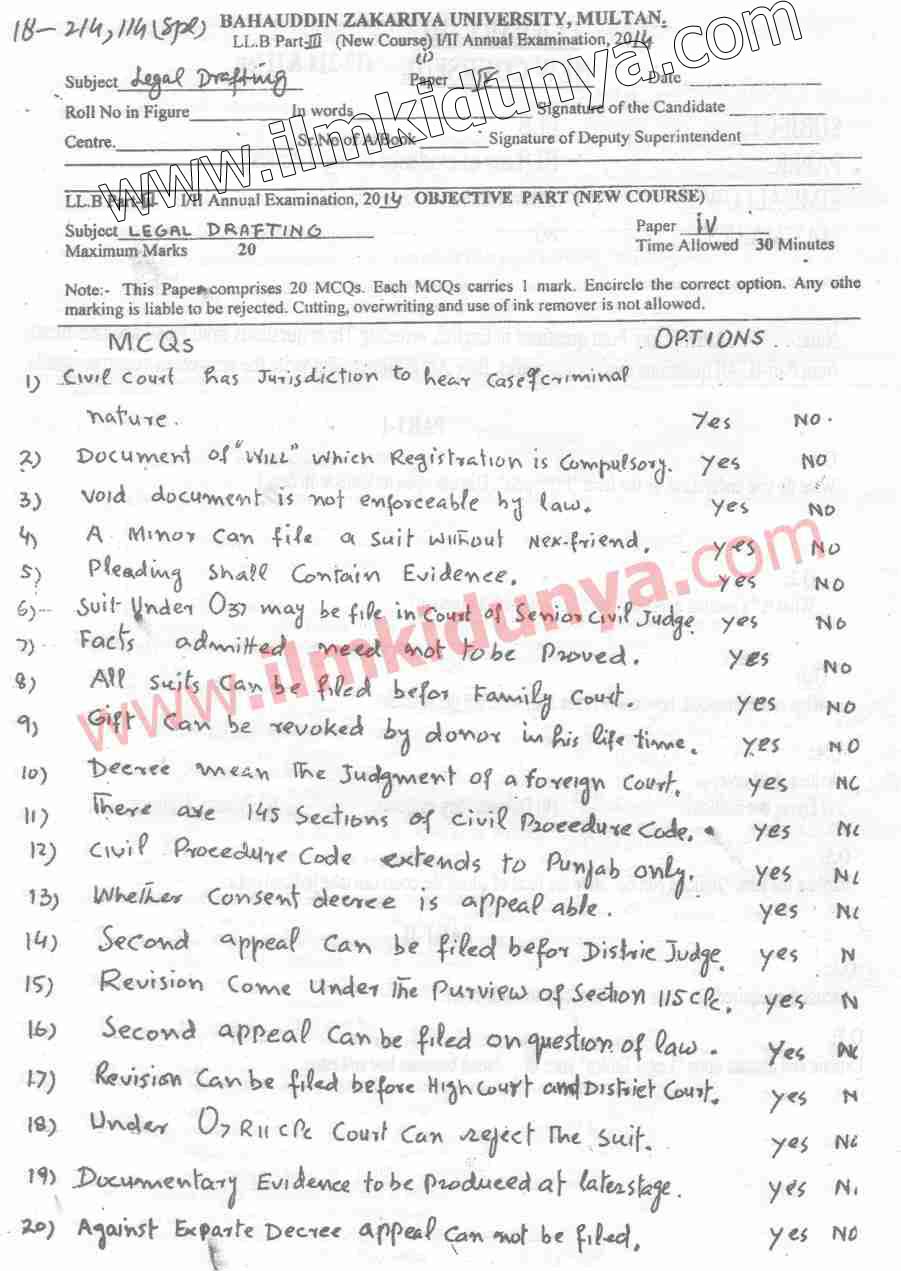 18-214,114(Spl)
BAHAUDDIN ZAKARIYA UNIVERSITY, MULTAN.
LL.B Part-III (New Course) I/II Annual Examination, 2014
Subject Legal Drafting Paper IV (i) Date
Roll No in Figure In words Signature of the Candidate
Centre. Sr.No of A/Book Signature of Deputy Superintendent
www.ilmkidunya.com
LL.B Part-III I/II Annual Examination, 2014 OBJECTIVE PART (NEW COURSE)
Subject LEGAL DRAFTING Paper iv
Maximum Marks 20 Time Allowed 30 Minutes
Note:- This Paper comprises 20 MCQs. Each MCQs carries 1 mark. Encircle the correct option. Any othe
marking is liable to be rejected. Cutting, overwriting and use of ink remover is not allowed.
MCQs OPTIONS
1) Civil Court has Jurisdiction to hear case of criminal
nature. Yes No.
2) Document of "WILL" which Registration is Compulsory. Yes No
3) void document is not enforceable by law. Yes No
4) A Minor Can file a suit without Nex-friend. Yes No
5) Pleading shall Contain Evidence. Yes No
6) Suit Under O37 may be file in Court of Senior Civil Judge Yes No
7) Facts admitted need not to be Proved. Yes No
8) All suits Can be filed befor Family Court. Yes No
9) Gift Can be revoked by donor in his life time. Yes No
10) Decree mean The Judgment of a foreign Court. Yes NC
11) There are 145 Sections of Civil Procedure Code. Yes Nc
12) Civil Procedure Code extends to Punjab only. Yes Nc
13) Whether Consent decree is appeal able. Yes Nc
14) Second appeal Can be filed befor Distric Judge. Yes N
15) Revision Come Under The Purview of Section 115 CPC. Yes N
16) Second appeal Can be filed on question of law. Yes Nc
17) Revision Can be filed before High Court and District Court. Yes N
18) Under O7 R11 CPC Court Can reject The suit. Yes Nc
19) Documentary Evidence to be produced at later stage. Yes N
20) Against Exparte Decree appeal Can not be filed. Yes No
www.ilmkidunya.com